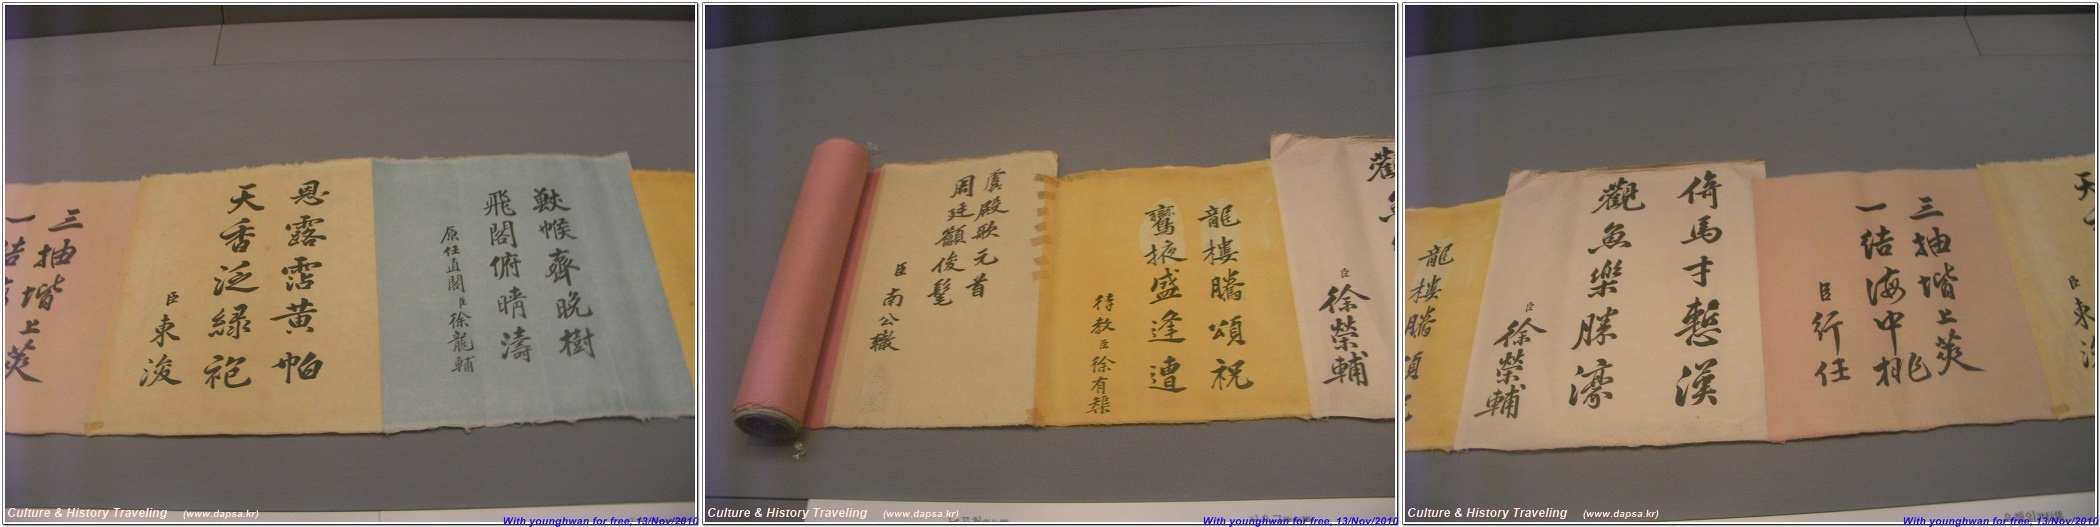 三抽堦上蓂
一結海
恩露霑黃帕
天香泛綠袍
臣東浚
飛閣俯晴濤
原任直閣臣徐龍輔
虞殿歌元首
周廷籲俊髦
臣南公轍
龍樓騰頌祝
鸞掖盛逢遭
待教臣徐有榘
觀魚
臣徐榮輔
龍樓騰頌
倚馬才慙漢
觀魚樂勝濠
臣徐榮輔
三抽堦上蓂
一結海中桃
臣行任
天
臣東浚
Culture & History Traveling (www.dapsa.kr)
With younghwan for free, 13/Nov/2010
Culture & History Traveling (www.dapsa.kr)
With younghwan for free, 13/Nov/2010
Culture & History Traveling (www.dapsa.kr)
With younghwan for free, 13/Nov/2010